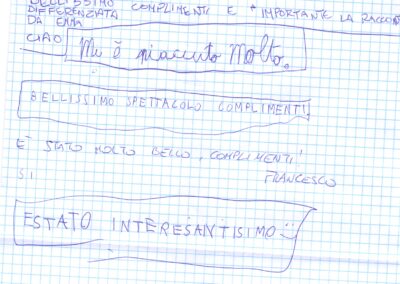 BELLISSIMO
DIFFERENZIATA COMPLIMENTI E + IMPORTANTE LA RACCO
DA EMMA
CIAO Mi è piaciuto molto.
BELLISSIMO SPETTACOLO COMPLIMENTI
E' STATO MOLTO BELLO, COMPLIMENTI!
FRANCESCO
SI
ESTATO INTERESANTISIMO